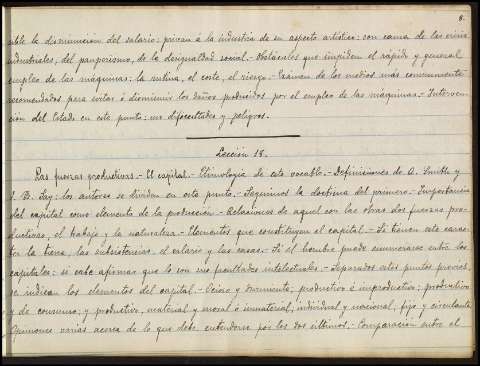 8.
nible la disminucion del salario; privan á la industria de su aspecto artístico: son causa de las crisis
industriales, del pauperismo, de la desigualdad social.- Obstáculos que impiden el rápido y general
empleo de las máquinas: la rutina, el coste, el riesgo.- Exámen de los medios más comunmente
recomendados para evitar ó disminuir los daños producidos por el empleo de las máquinas.- Interven-
ción del Estado en este punto: sus dificultades y peligros.
Lección 18.
Las fuerzas productivas.- El capital.- Etimología de este vocablo.- Definiciones de A. Smith y
J. B. Say: los autores se dividen en este punto.- Seguimos la doctrina del primero.- Importancia
del capital como elemento de la produccion.- Relaciones de aquel con las otras dos fuerzas pro-
ductivas, el trabajo y la naturaleza.- Elementos que constituyen el capital.- Si tienen este carac-
ter la tierra, las subsistencias, el salario y las casas.- Si el hombre puede enumerarse entre los
capitales: si cabe afirmar que lo son sus facultades intelectuales.- Separados estos puntos previos,
se indican los elementos del capital.- Ocioso y durmiente; productivo é improductivo; productivo
y de consumo; y productivo, material y moral ó inmaterial, individual y nacional, fijo y circulante.
Opiniones varias acerca de lo que debe entenderse por los dos últimos.- Comparación entre el